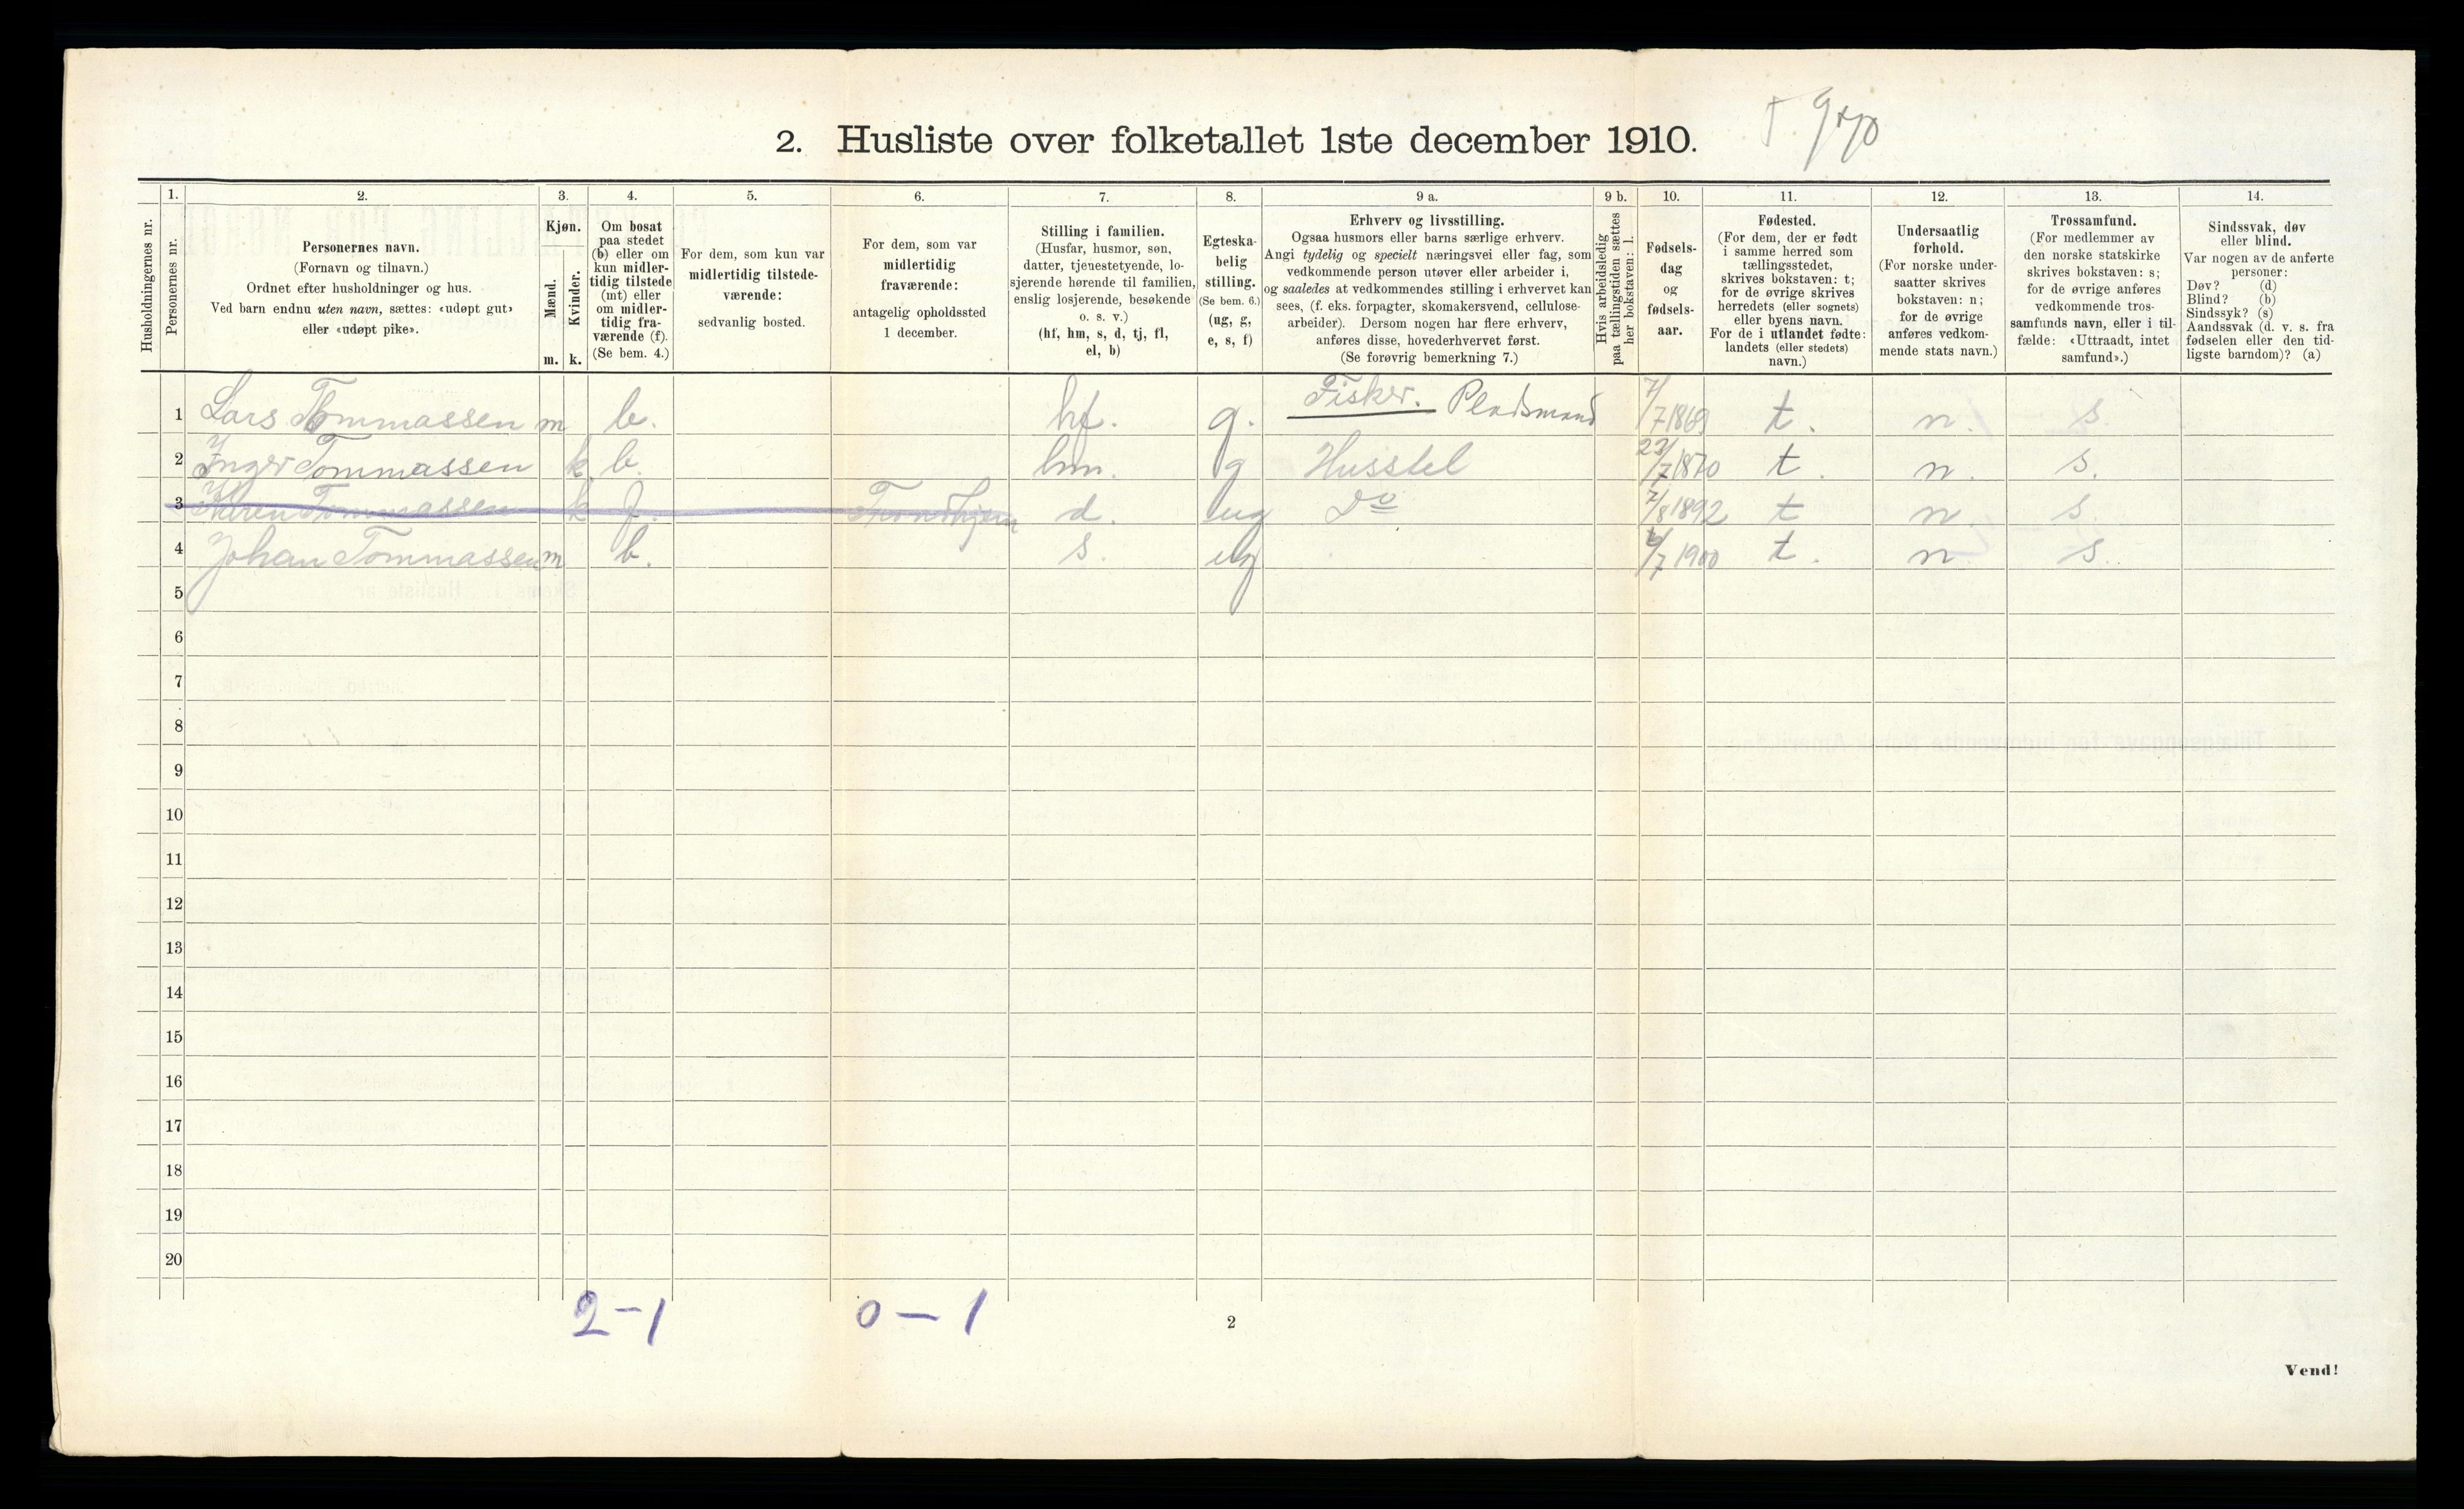 2. Husliste over folketallet 1ste december 1910.
1. 2. 3. 4. 5. 6. 7. 8. 9 a. 9 b. 10. 11. 12. 13. 14.
Husholdningernes nr.
Personernes nr.
Personernes navn.
(Fornavn og tilnavn.)
Ordnet efter husholdninger og hus.
Ved barn endnu uten navn, sættes: «udøpt gut»
eller «udøpt pike».
Kjøn.
Mænd.
Kvinder.
m. k.
Om bosat
paa stedet
(b) eller om
kun midler-
tidig tilstede
(mt) eller
om midler-
tidig fra-
værende (f).
(Se bem. 4.)
For dem, som kun var
midlertidig tilstede-
værende:
sedvanlig bosted.
For dem, som var
midlertidig
fraværende:
antagelig opholdssted
1 december.
Stilling i familien.
(Husfar, husmor, søn,
datter, tjenestetyende, lo-
sjerende hørende til familien,
enslig losjerende, besøkende
o. s. v.)
(hf, hm, s, d, tj, fl,
el, b)
Egteska-
belig
stilling.
(Se bem. 6.)
(ug, g,
e, s, f)
Erhverv og livsstilling.
Ogsaa husmors eller barns særlige erhverv.
Angi tydelig og specielt næringsvei eller fag, som
vedkommende person utøver eller arbeider i,
og saaledes at vedkommendes stilling i erhvervet kan
sees, (f. eks. forpagter, skomakersvend, cellulose-
arbeider). Dersom nogen har flere erhverv,
anføres disse, hovederhvervet først.
(Se forøvrig bemerkning 7.)
Hvis arbeidsledig
paa tællingstiden sættes
her bokstaven: l.
Fødsels-
dag
og
fødsels-
aar.
Fødested.
(For dem, der er født
i samme herred som
tællingsstedet,
skrives bokstaven: t;
for de øvrige skrives
herredets (eller sognets)
eller byens navn.
For de i utlandet fødte:
landets (eller stedets)
navn.)
Undersaatlig
forhold.
(For norske under-
saatter skrives
bokstaven: n;
for de øvrige
anføres vedkom-
mende stats navn.)
Trossamfund.
(For medlemmer av
den norske statskirke
skrives bokstaven: s;
for de øvrige anføres
vedkommende tros-
samfunds navn, eller i til-
fælde: «Uttraadt, intet
samfund».)
Sindssvak, døv
eller blind.
Var nogen av de anførte
personer:
Døv? (d)
Blind? (b)
Sindssyk? (s)
Aandssvak (d. v. s. fra
fødselen eller den tid-
ligste barndom)? (a)
1 Lars Tommassen m b. hf. g. Fisker. Pladsmand 7/7 1869 t. n. s.
2 Inger Tommassen k b. hm. g Husstel 23/7 1870 t. n. s.
3 Karen Tommassen k f. Trondhjem d. ug Do 7/8 1892 t n s.
4 Johan Tommassen m b. s. ug 6/7 1900 t. n s.
5
6
7
8
9
10
11
12
13
14
15
16
17
18
19
20
2-1 0-1
2
Vend!